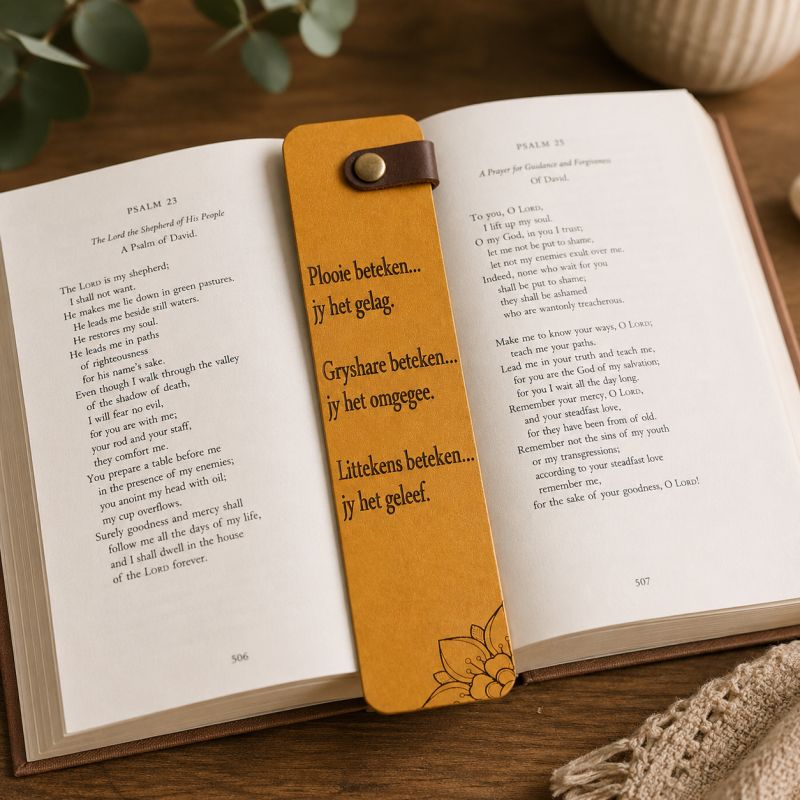 PSALM 23
The Lord the Shepherd of His People
A Psalm of David.
The LORD is my shepherd;
I shall not want.
He makes me lie down in green pastures.
He leads me beside still waters.
He restores my soul.
He leads me in paths
of righteousness
for his name's sake.
Even though I walk through the valley
of the shadow of death,
I will fear no evil,
for you are with me;
your rod and your staff,
they comfort me.
You prepare a table before me
in the presence of my enemies;
you anoint my head with oil;
my cup overflows.
Surely goodness and mercy shall
follow me all the days of my life,
and I shall dwell in the house
of the LORD forever.
506
Plooie beteken...
jy het gelag.
Gryshare beteken...
jy het omgegee.
Littekens beteken...
jy het geleef.
PSALM 25
A Prayer for Guidance and Forgiveness
Of David.
To you, O LORD,
I lift up my soul.
O my God, in you I trust;
let me not be put to shame,
let not my enemies exult over me.
Indeed, none who wait for you
shall be put to shame;
they shall be ashamed
who are wantonly treacherous.
Make me to know your ways, O LORD;
teach me your paths.
Lead me in your truth and teach me,
for you are the God of my salvation;
for you I wait all the day long.
Remember your mercy, O LORD,
and your steadfast love,
for they have been from of old.
Remember not the sins of my youth
or my transgressions;
according to your steadfast love
remember me,
for the sake of your goodness, O LORD!
507